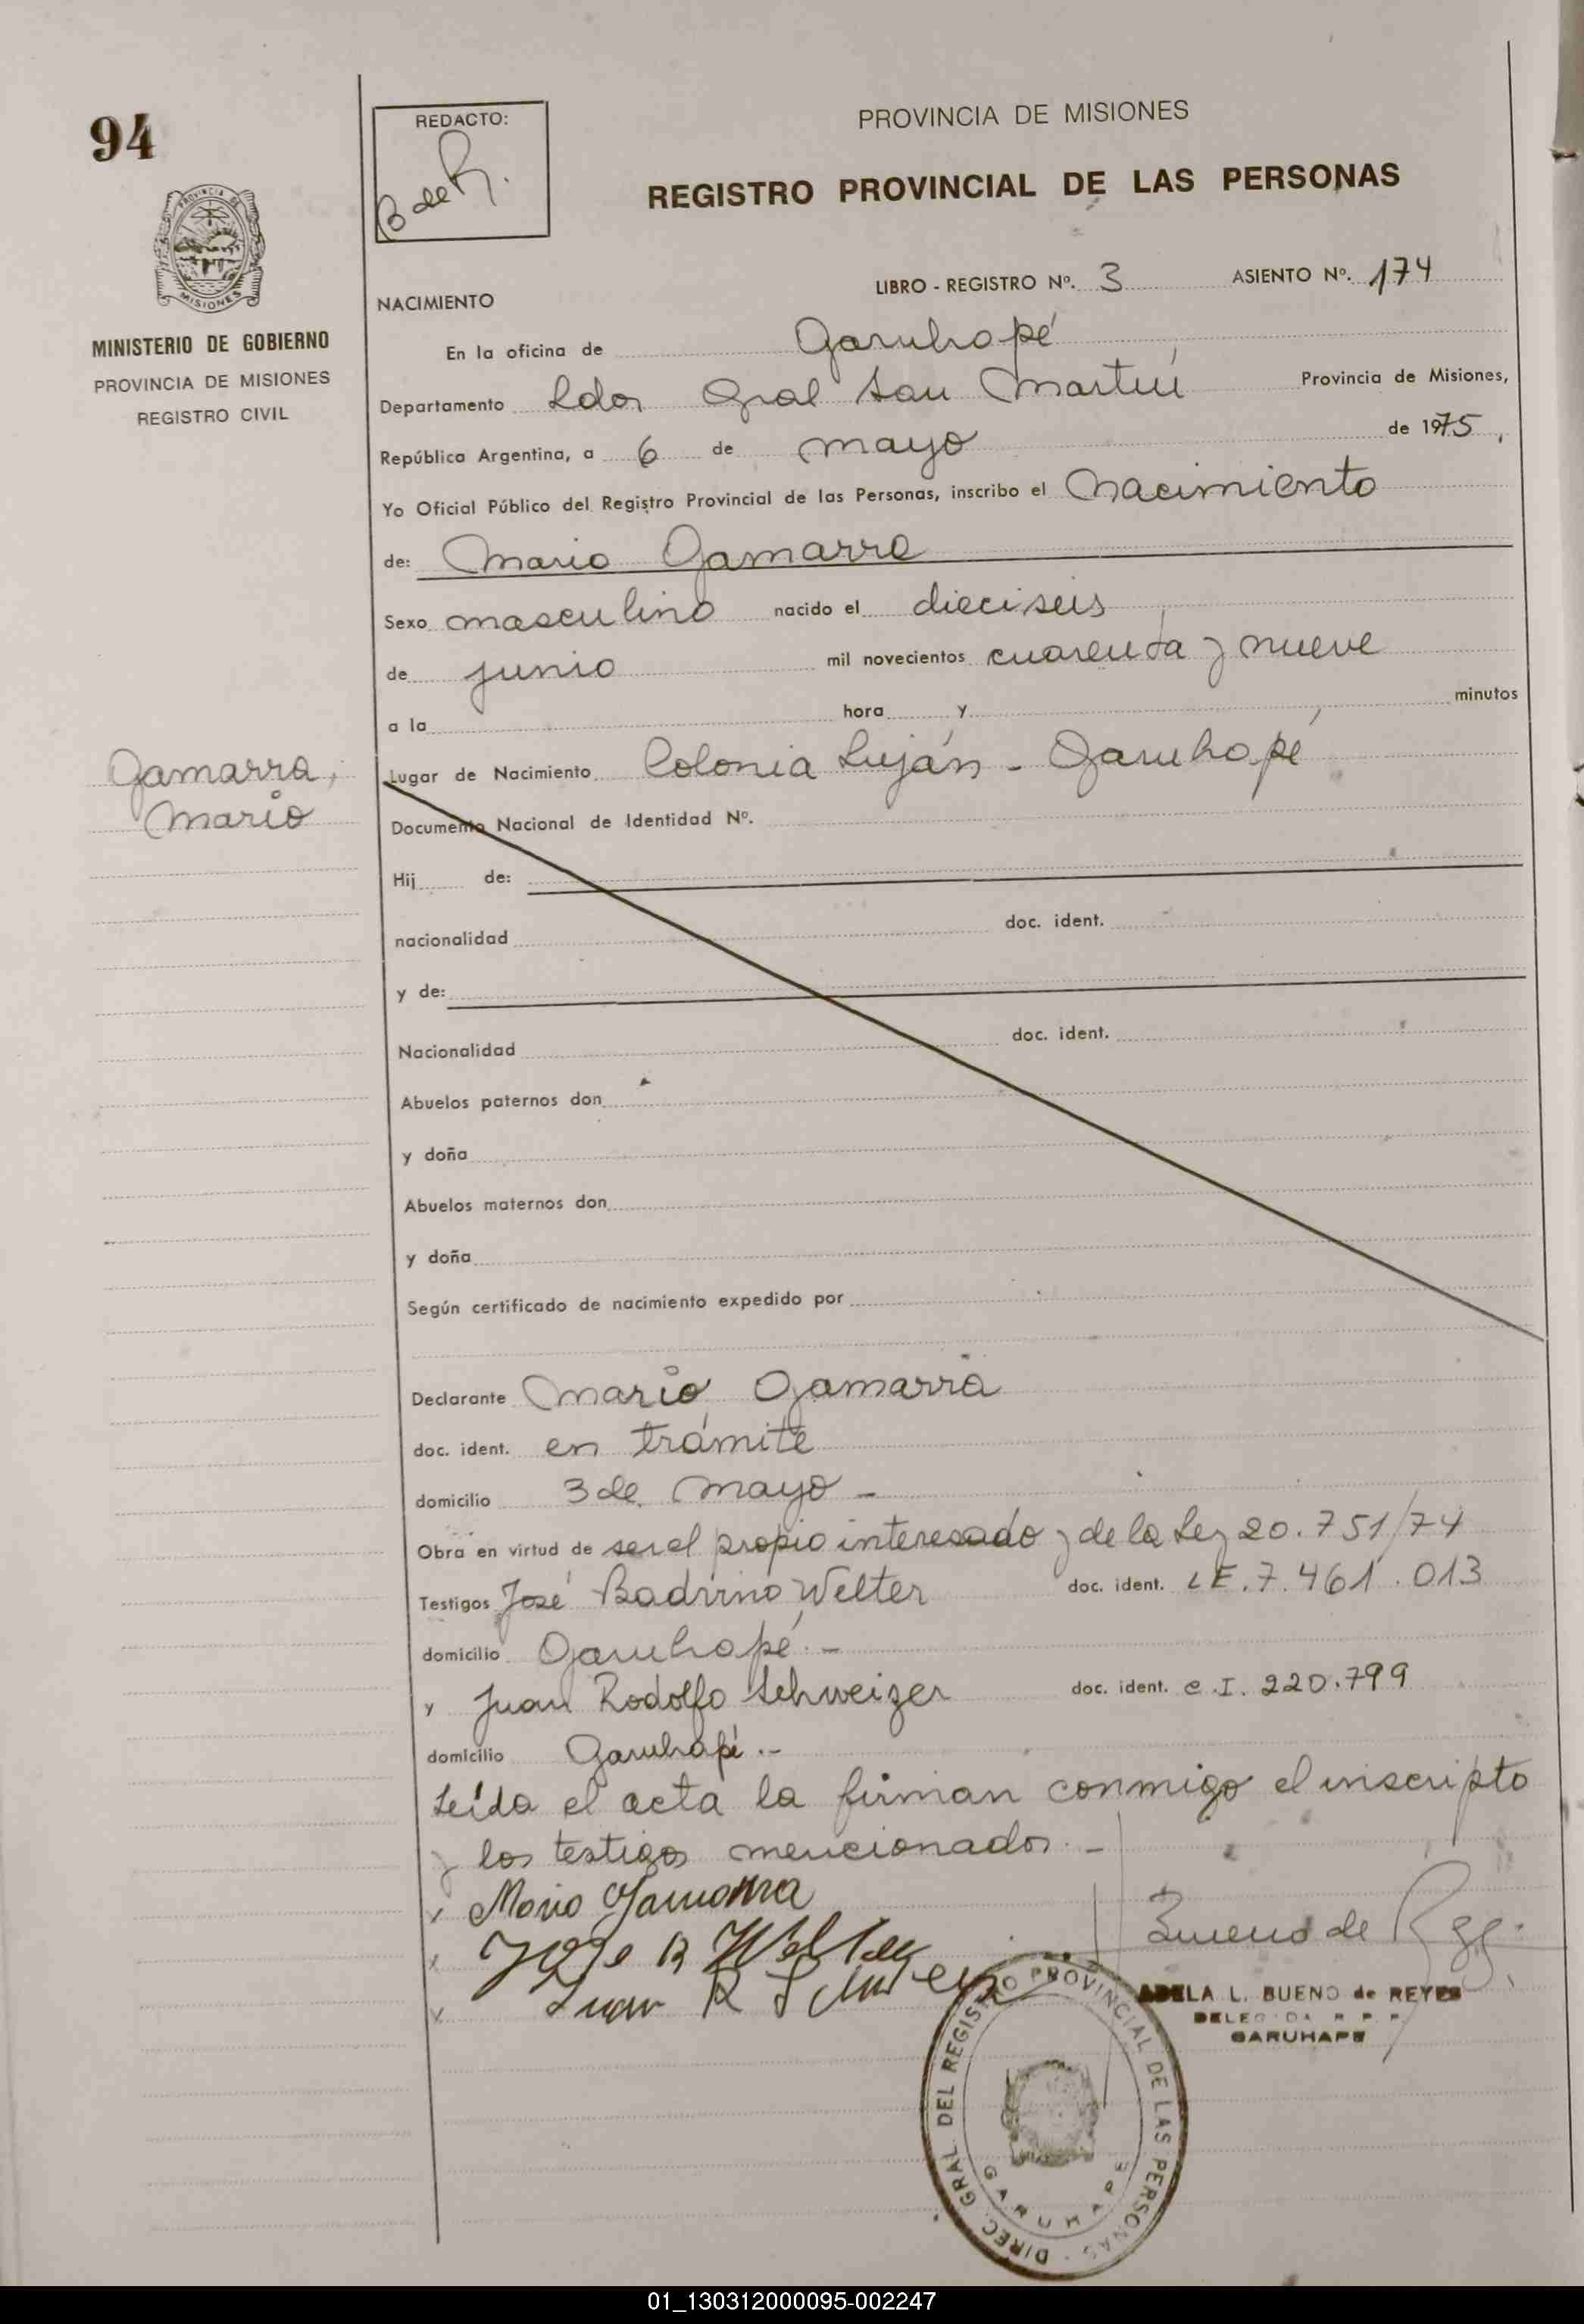 94
REDACTO:
B de R.
PROVINCIA DE MISIONES
REGISTRO PROVINCIAL DE LAS PERSONAS
PROVINCIA DE
MISIONES
MINISTERIO DE GOBIERNO
PROVINCIA DE MISIONES
REGISTRO CIVIL
LIBRO - REGISTRO Nº. 3 ASIENTO Nº. 174
NACIMIENTO
En la oficina de Garuhapé
Departamento Ldor Gral San Martín Provincia de Misiones,
República Argentina, a 6 de mayo de 1975,
Yo Oficial Público del Registro Provincial de las Personas, inscribo el Nacimiento
de: Mario Gamarra
Sexo masculino nacido el dieciseis
de junio mil novecientos cuarenta y nueve
a la hora y minutos
Gamarra,
Mario
Lugar de Nacimiento Colonia Luján - Garuhapé
Documento Nacional de Identidad Nº.
Hij de:
nacionalidad doc. ident.
y de:
Nacionalidad doc. ident.
Abuelos paternos don
y doña
Abuelos maternos don
y doña
Según certificado de nacimiento expedido por
Declarante Mario Gamarra
doc. ident. en trámite
domicilio 3 de Mayo -
Obra en virtud de ser el propio interesado y de la Ley 20.751/74
Testigos José Badvino Welter doc. ident. LE.7.461.013
domicilio Garuhapé. -
y Juan Rodolfo Schweizer doc. ident. C.I. 220.799
domicilio Garuhapé. -
Leída el acta la firman conmigo el inscripto
y los testigos mencionados. -
x Mario Gamarra
x Jose B Welter
x Juan R
Bueno de
ADELA L. BUENO de REYES
DELEGADA R. P. P.
GARUHAPE
DIREC. GRAL. DEL REGISTRO PROVINCIAL DE LAS PERSONAS -
GARUHAPE
01_130312000095-002247